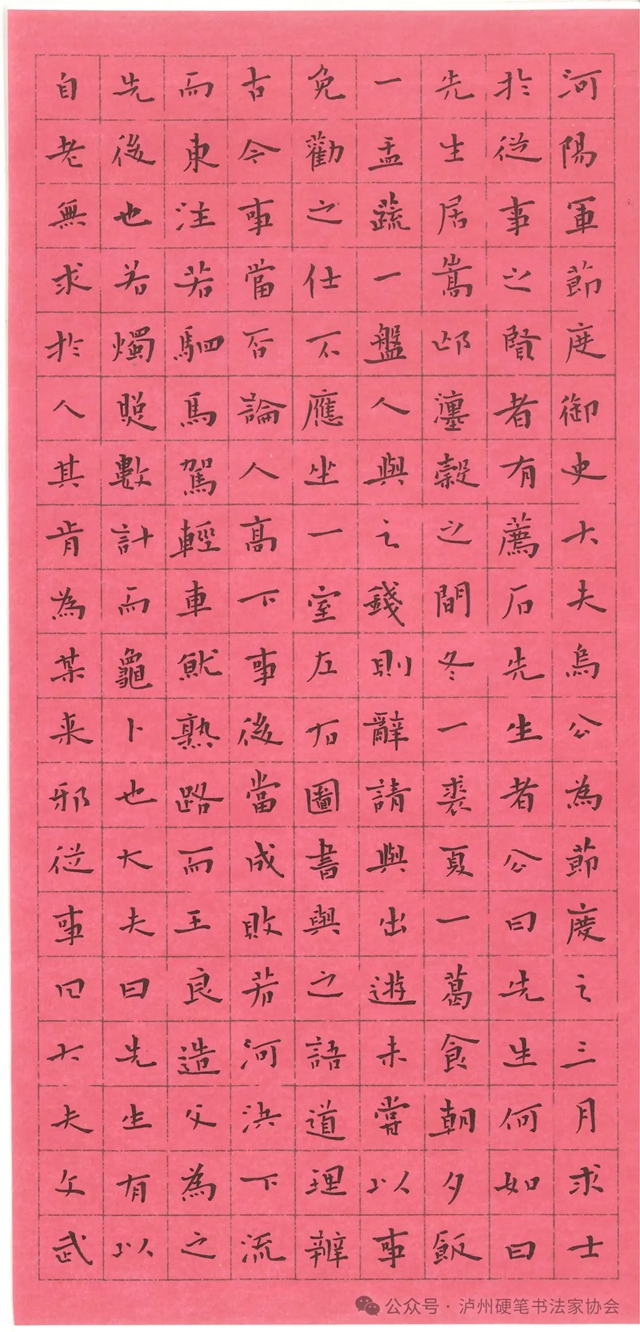 河陽軍節度御史大夫烏公為節度之三月求士
於從事之賢者有薦石先生者公曰先生何如曰
先生居嵩邙瀍穀之間冬一裘夏一葛食朝夕飯
一盂蔬一盤人與之錢則辭請與出遊未嘗以事
免勸之仕不應坐一室左右圖書與之語道理辨
古今事當否論人高下事後當成敗若河決下流
而東注若駟馬駕輕車就熟路而王良造父為之
先後也若燭照數計而龜卜也大夫曰先生有以
自老無求於人其肯為某来邪從事曰大夫文武
公众号·泸州硬笔书法家协会